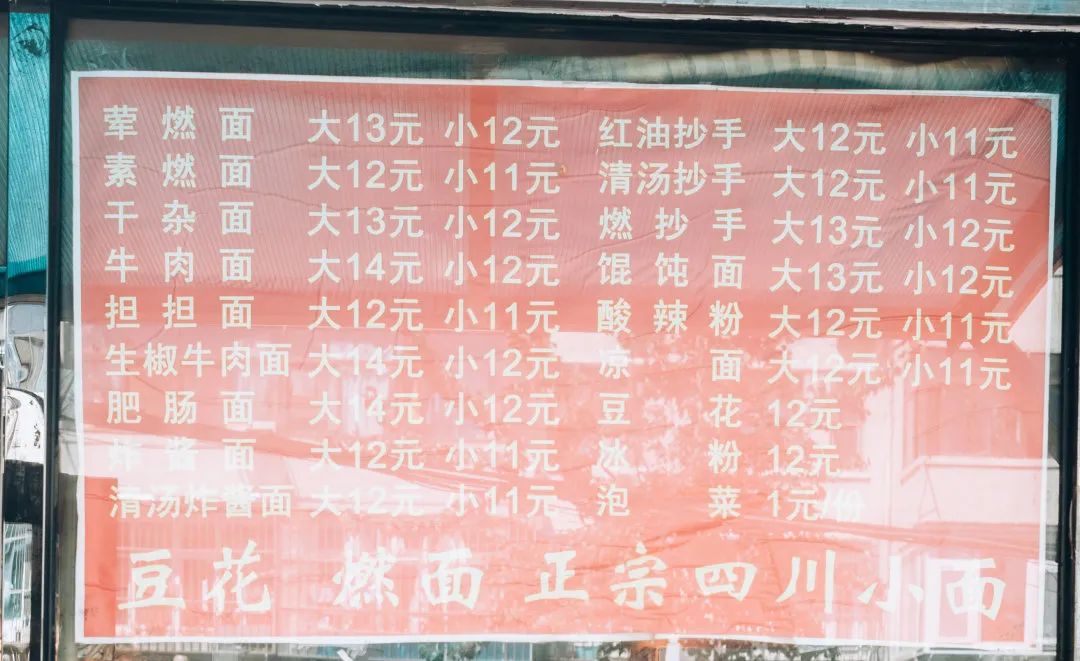 荤燃面 大13元 小12元 红油抄手 大12元 小11元
素燃面 大12元 小11元 清汤抄手 大12元 小11元
干杂面 大13元 小12元 燃抄手 大13元 小12元
牛肉面 大14元 小12元 馄饨面 大13元 小12元
担担面 大12元 小11元 酸辣粉 大12元 小11元
生椒牛肉面 大14元 小12元 凉面 大12元 小11元
肥肠面 大14元 小12元 豆花 12元
炸酱面 大12元 小11元 冰粉 12元
清汤炸酱面 大12元 小11元 泡菜 1元/份
豆花 燃面 正宗四川小面